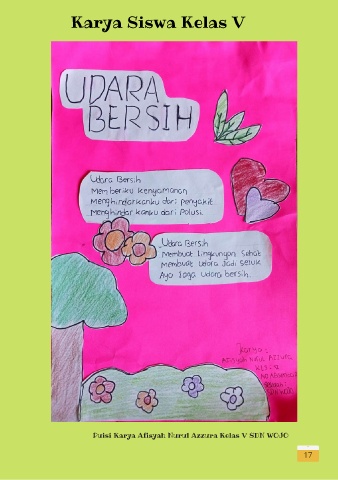 Karya Siswa Kelas V
UDARA
BERSIH
Udara Bersih
Memberiku kenyamanan
Menghindarkanku dari penyakit
Menghindarkanku dari Polusi
Udara Bersih
Membuat lingkungan sehat
Membuat udara Jadi sejuk
Ayo Jaga Udara bersih
karya:
Puisi Karya Afisyah Nurul Azzura Kelas V SDN WOJO
17